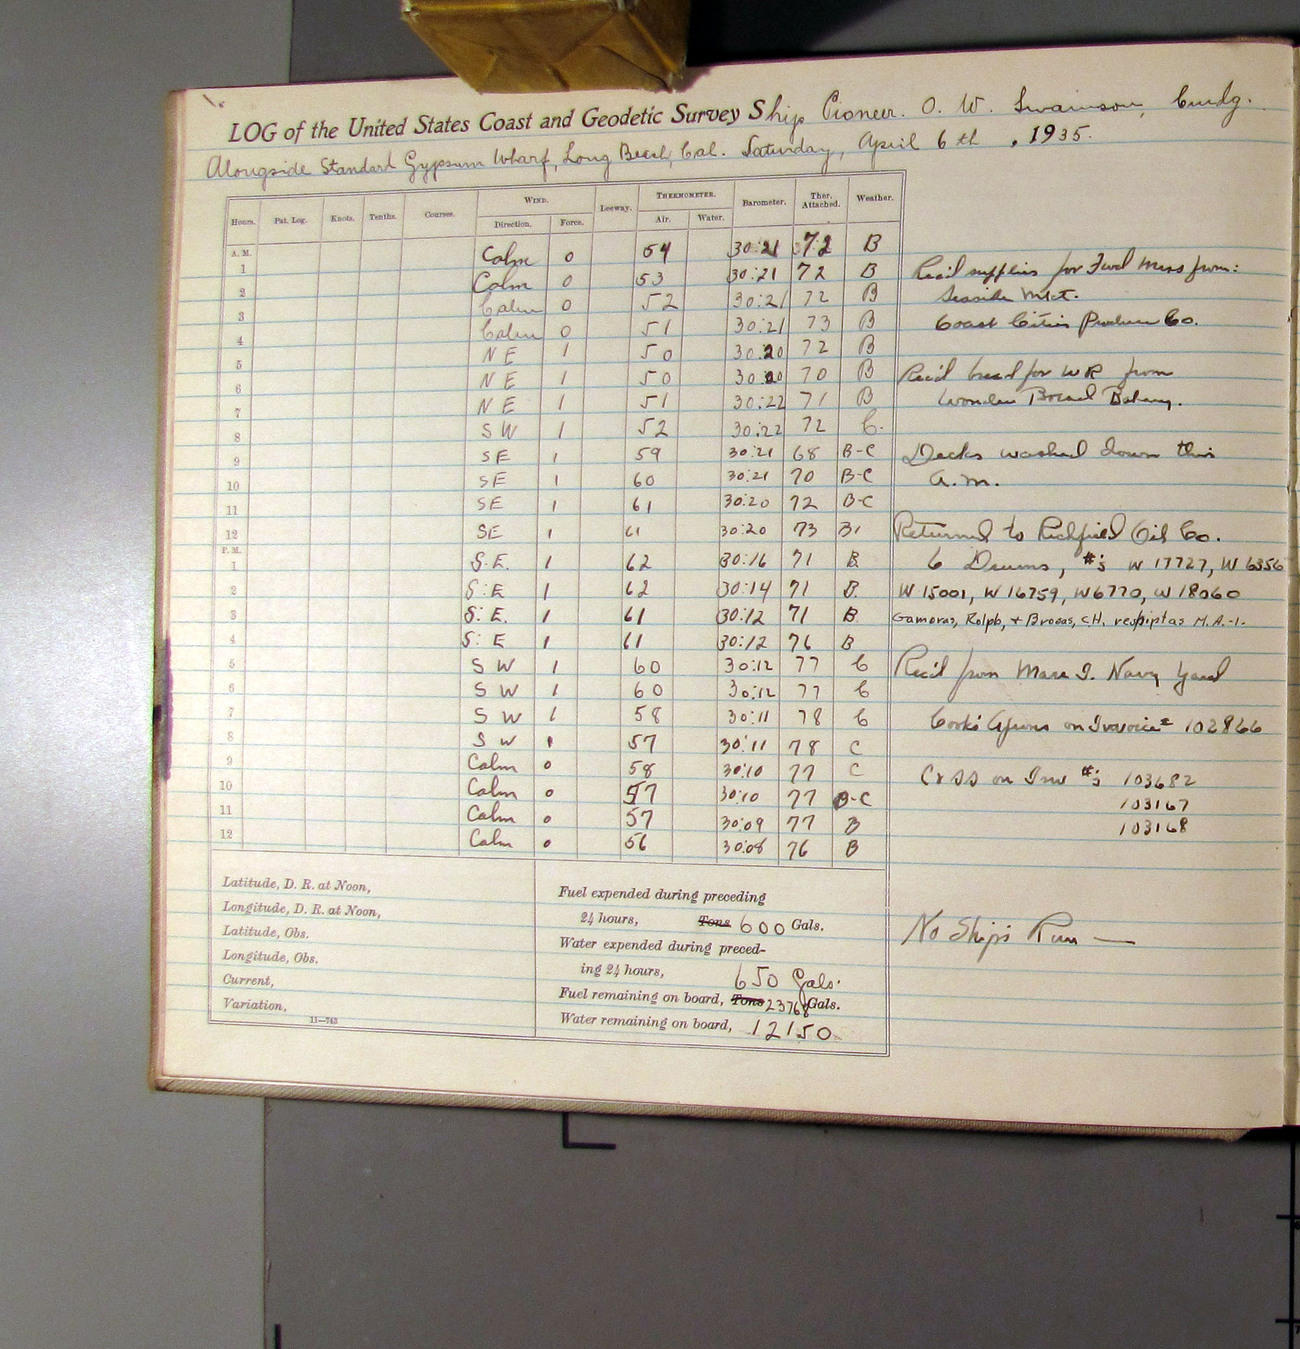 LOG of the United States Coast and Geodetic Survey Ship Pioneer. O. W. Swainson, Cmdg.
Alongside Standard Gypsum Wharf, Long Beach, Cal. Saturday, April 6th, 1935.
Hours. Pat. Log. Knots. Tenths. Courses. WIND. Leeway. THERMOMETER. Barometer. Ther. Attached. Weather.
Direction. Force. Air. Water.
A. M.
1 Calm 0 54 30:21 72 B
2 Calm 0 53 30:21 72 B
3 Calm 0 52 30:21 72 B
4 Calm 0 51 30:21 73 B
5 NE 1 50 30:20 72 B
6 NE 1 50 30:20 70 B
7 NE 1 51 30:22 71 B
8 SW 1 52 30:22 72 C.
9 SE 1 59 30:21 68 B-C
10 SE 1 60 30:21 70 B-C
11 SE 1 61 30:20 72 B-C
12 SE 1 61 30:20 73 B
P. M.
1 S.E. 1 62 30:16 71 B
2 S:E 1 62 30:14 71 B.
3 S:E. 1 61 30:12 71 B
4 S:E 1 61 30:12 76 B
5 SW 1 60 30:12 77 C
6 SW 1 60 30:12 77 C
7 SW 1 58 30:11 78 C
8 SW 1 57 30:11 78 C
9 Calm 0 58 30:10 77 C
10 Calm 0 57 30:10 77 B-C
11 Calm 0 57 30:09 77 B
12 Calm 0 56 30:08 76 B
Rec'd supplies for Fwd Mess from:
Seaside Mkt.
Coast Cities Produce Co.
Rec'd bread for WR from
Wonder Bread Bakery.
Decks washed down this
a.m.
Returned to Richfield Oil Co.
6 Drums, #'s W 17727, W 6356
W 15001, W 16759, W6770, W 18060
Gamoras, Rolph, + Brocas, C.H. M.A.-1.
Rec'd from Mare I. Navy Yard
Cook's Aprons on Invoice 102866
C&SS on Inv #'s 103682
103167
103168
No Ship's Run —
Latitude, D. R. at Noon,
Longitude, D. R. at Noon,
Latitude, Obs.
Longitude, Obs.
Current,
Variation,
11—743
Fuel expended during preceding
24 hours, Tons 600 Gals.
Water expended during preced-
ing 24 hours, 650 Gals.
Fuel remaining on board, Tons 23768 Gals.
Water remaining on board, 12150